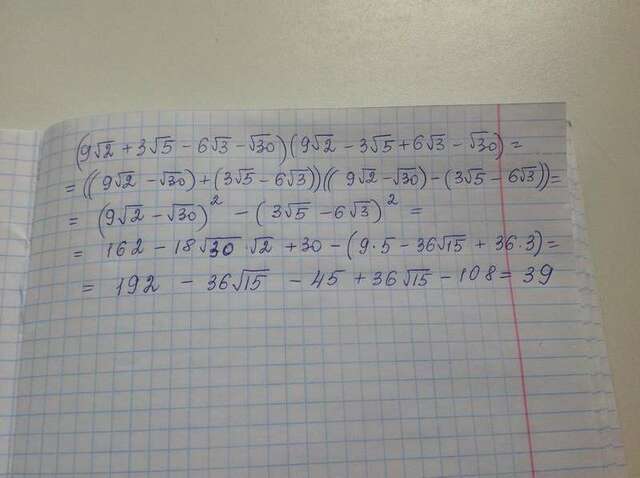 (9√2 + 3√5 - 6√3 - √30)(9√2 - 3√5 + 6√3 - √30) =
= ((9√2 - √30) + (3√5 - 6√3))((9√2 - √30) - (3√5 - 6√3)) =
= (9√2 - √30)² - (3√5 - 6√3)² =
= 162 - 18√30 · √2 + 30 - (9·5 - 36√15 + 36·3) =
= 192 - 36√15 - 45 + 36√15 - 108 = 39